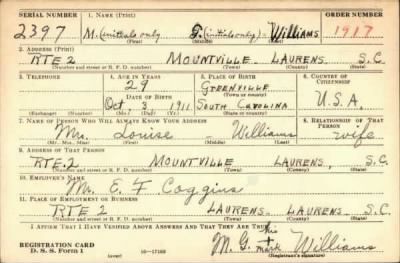 SERIAL NUMBER 1. NAME (Print) ORDER NUMBER
2397 M. (initials only) G. (initial only) - Williams 1917
(First) (Middle) (Last)
2. ADDRESS (Print)
RTE 2 MOUNTVILLE LAURENS S.C
(Number and street or R. F. D. number) (Town) (County) (State)
3. TELEPHONE 4. AGE IN YEARS 5. PLACE OF BIRTH 6. COUNTRY OF CITIZENSHIP
29 GREENVILLE
(Town or county)
DATE OF BIRTH
Oct 3 1911 SOUTH CAROLINA U.S.A.
(Exchange) (Number) (Mo.) (Day) (Yr.) (State or country)
7. NAME OF PERSON WHO WILL ALWAYS KNOW YOUR ADDRESS 8. RELATIONSHIP OF THAT PERSON
Mrs. Louise - Williams wife
(Mr., Mrs., Miss) (First) (Middle) (Last)
9. ADDRESS OF THAT PERSON
RTE. 2 MOUNTVILLE LAURENS, S.C.
(Number and street or R. F. D. number) (Town) (County) (State)
10. EMPLOYER'S NAME
Mr. E. F Coggins
11. PLACE OF EMPLOYMENT OR BUSINESS
RTE 2 LAURENS LAURENS S.C.
(Number and street or R. F. D. number) (Town) (County) (State)
I AFFIRM THAT I HAVE VERIFIED ABOVE ANSWERS AND THAT THEY ARE TRUE.
his
REGISTRATION CARD M. G. mark Williams
D. S. S. Form 1 (over) (Registrant's signature)